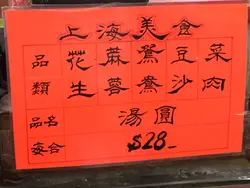 上海美食
品 花 蔴 鴛 豆 菜
類 生 蓉 鴦 沙 肉
品名 湯圓
每 $28-